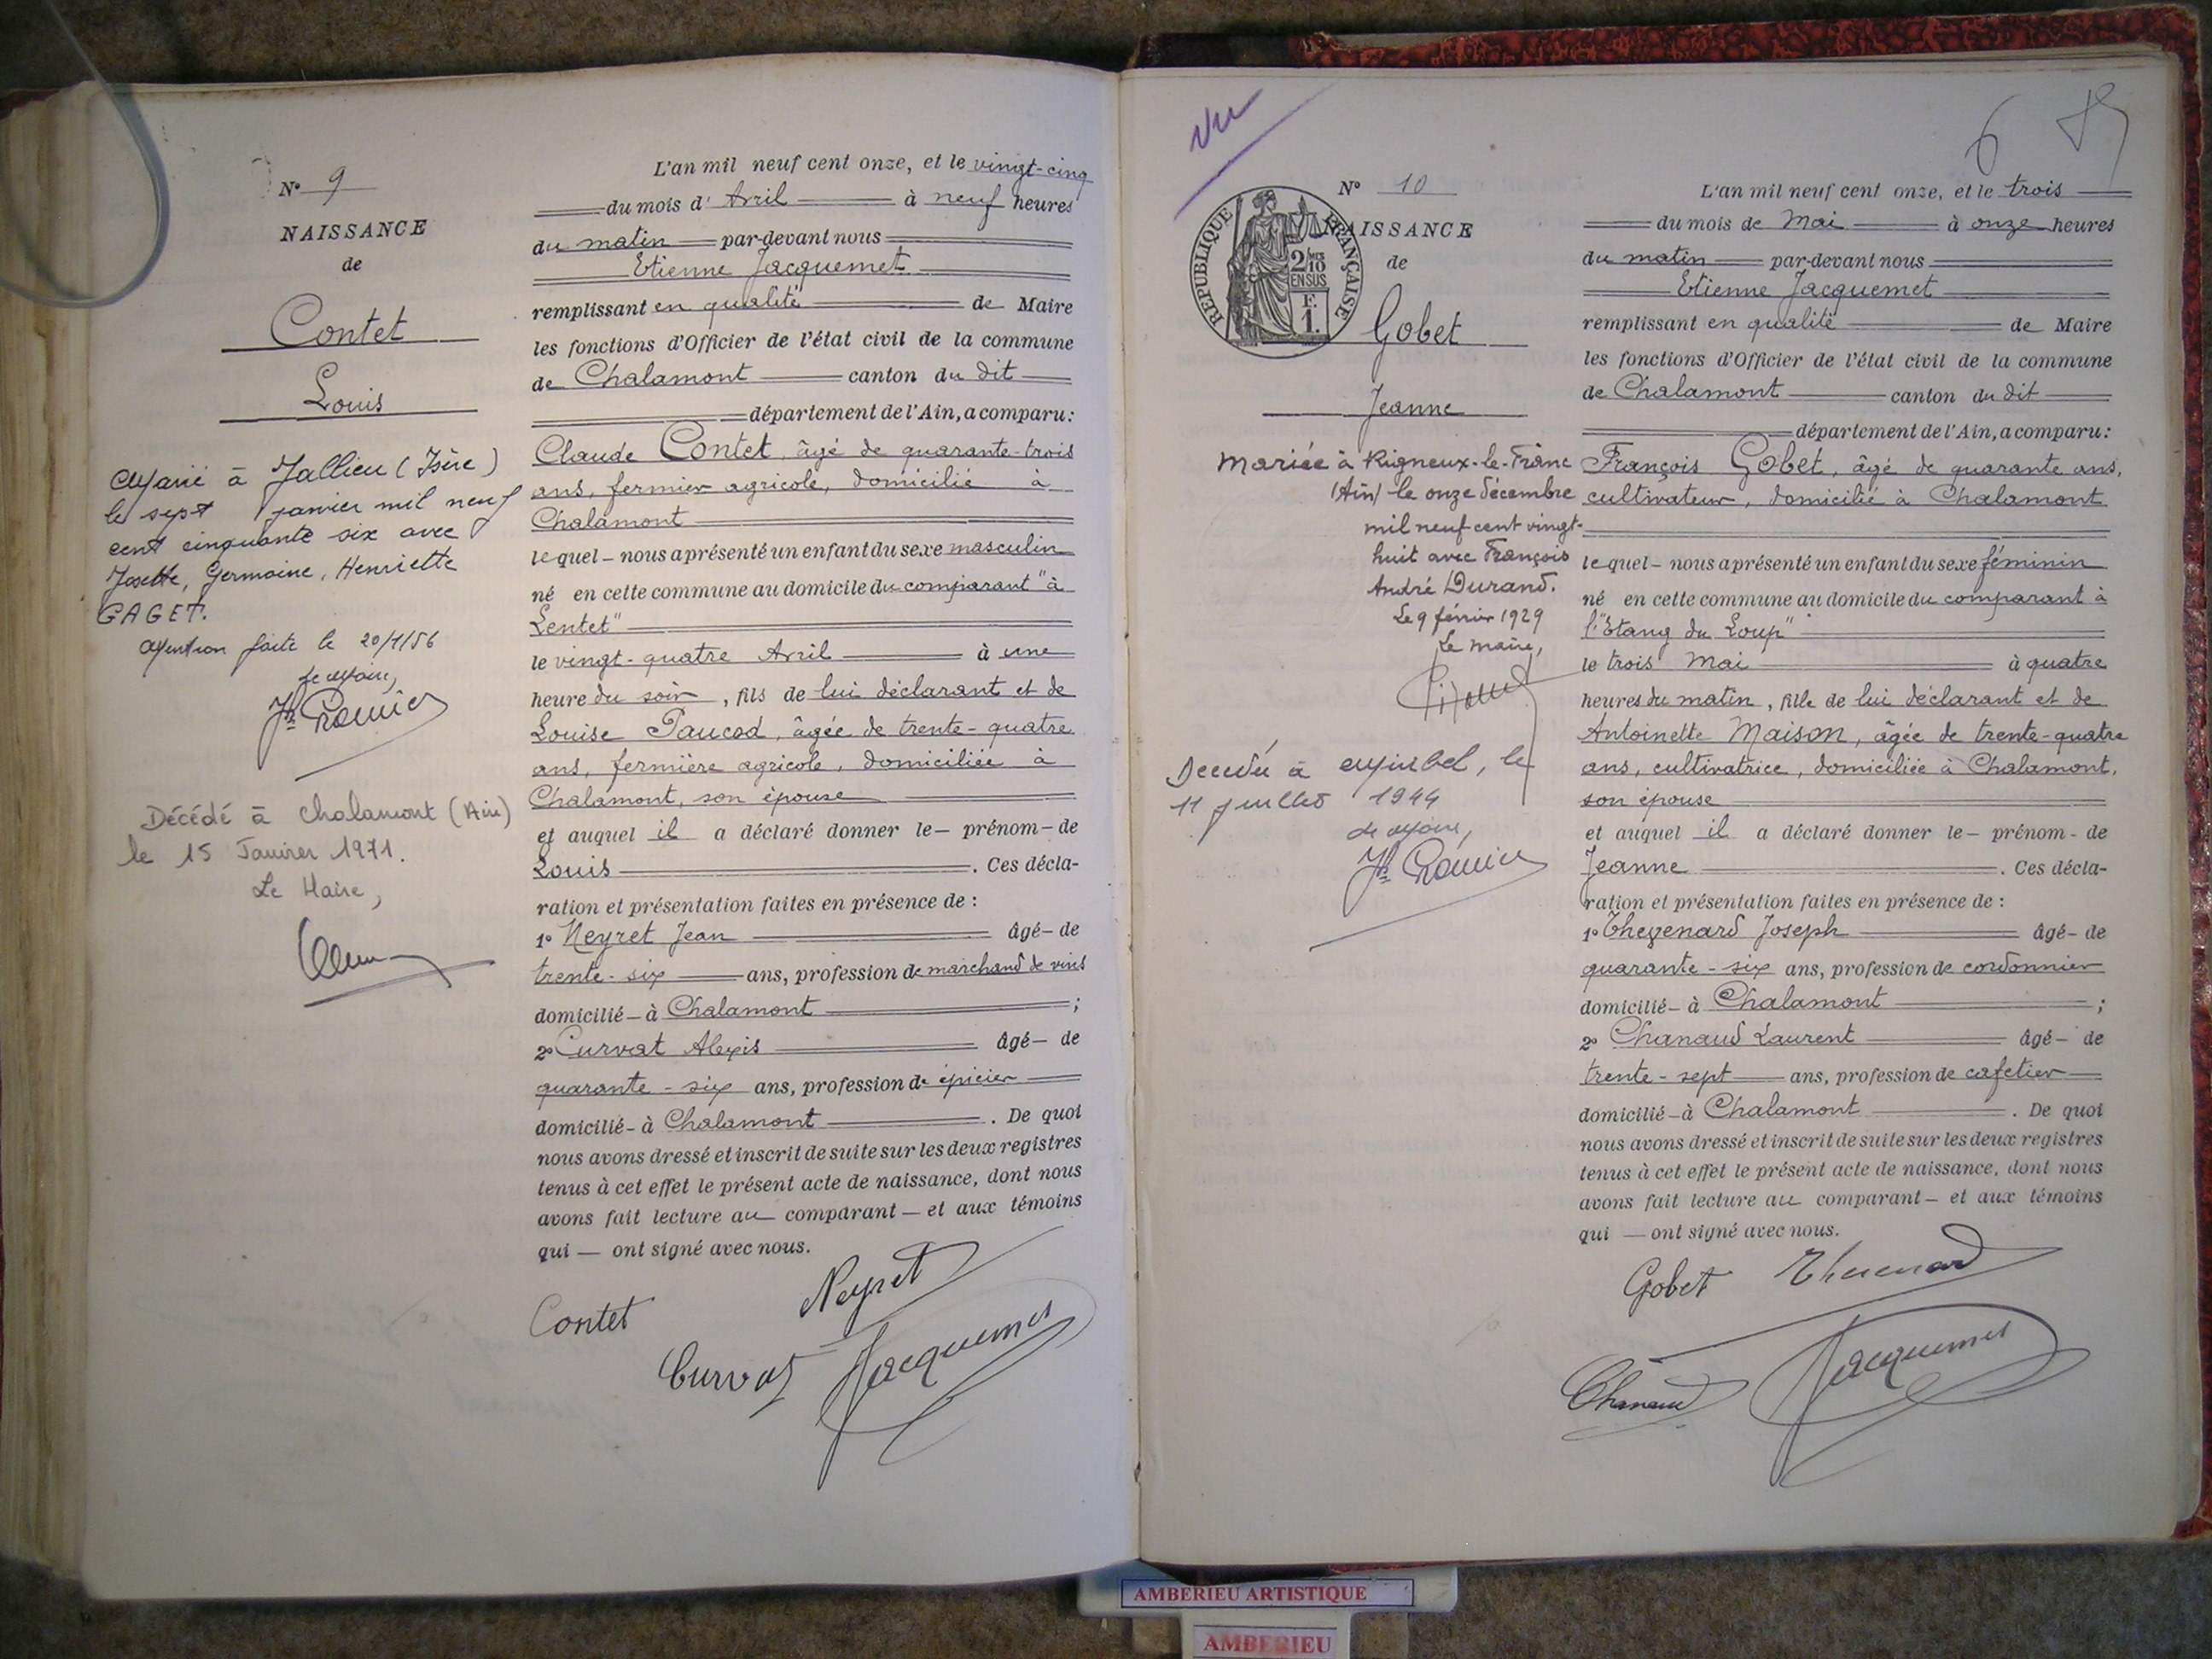 N° 9
NAISSANCE
de
Contet
Louis
Marié à Jallieu (Isère)
le sept janvier mil neuf
cent cinquante six avec
Josette, Germaine, Henriette
GAGET.
Mention faite le 20/1/56
Le Maire,
Décédé à Chalamont (Ain)
le 15 Janvier 1971.
Le Maire,
L'an mil neuf cent onze, et le vingt-cinq
du mois d'Avril à neuf heures
du matin par-devant nous
Etienne Jacquemet
remplissant en qualité de Maire
les fonctions d'Officier de l'état civil de la commune
de Chalamont canton du dit
département de l'Ain, a comparu:
Claude Contet, âgé de quarante-trois
ans, fermier agricole, domicilié à
Chalamont
lequel - nous a présenté un enfant du sexe masculin
né en cette commune au domicile du comparant "à
Lentet"
le vingt-quatre Avril à une
heure du soir, fils de lui déclarant et de
Louise Paucod, âgée de trente-quatre
ans, fermière agricole, domiciliée à
Chalamont, son épouse
et auquel il a déclaré donner le - prénom - de
Louis. Ces décla-
ration et présentation faites en présence de :
1° Neyret Jean âgé - de
trente-six ans, profession de marchand de vins
domicilié - à Chalamont ;
2° Curvat Alexis âgé - de
quarante-six ans, profession de épicier
domicilié - à Chalamont. De quoi
nous avons dressé et inscrit de suite sur les deux registres
tenus à cet effet le présent acte de naissance, dont nous
avons fait lecture au comparant - et aux témoins
qui - ont signé avec nous.
Contet Neyret
Curvat Jacquemet
Vu
6
N° 10
NAISSANCE
de
REPUBLIQUE FRANÇAISE
2/10 EN SUS
F. 1.
Gobet
Jeanne
Mariée à Rigneux-le-Franc
(Ain) le onze décembre
mil neuf cent vingt-
huit avec François
André Durand.
Le 9 février 1929
Le maire,
Décédée à Miribel, le
11 juillet 1944
Le Maire,
L'an mil neuf cent onze, et le trois
du mois de Mai à onze heures
du matin par-devant nous
Etienne Jacquemet
remplissant en qualité de Maire
les fonctions d'Officier de l'état civil de la commune
de Chalamont canton du dit
département de l'Ain, a comparu:
François Gobet, âgé de quarante ans,
cultivateur, domicilié à Chalamont
lequel - nous a présenté un enfant du sexe féminin
né en cette commune au domicile du comparant à
l'"Etang du Loup"
le trois Mai à quatre
heures du matin, fille de lui déclarant et de
Antoinette Maison, âgée de trente-quatre
ans, cultivatrice, domiciliée à Chalamont,
son épouse
et auquel il a déclaré donner le - prénom - de
Jeanne. Ces décla-
ration et présentation faites en présence de :
1° Thevenard Joseph âgé - de
quarante-six ans, profession de cordonnier
domicilié - à Chalamont ;
2° Chanaud Laurent âgé - de
trente-sept ans, profession de cafetier
domicilié - à Chalamont. De quoi
nous avons dressé et inscrit de suite sur les deux registres
tenus à cet effet le présent acte de naissance, dont nous
avons fait lecture au comparant - et aux témoins
qui - ont signé avec nous.
Gobet Thevenard
Chanaud Jacquemet
AMBERIEU ARTISTIQUE
AMBERIEU